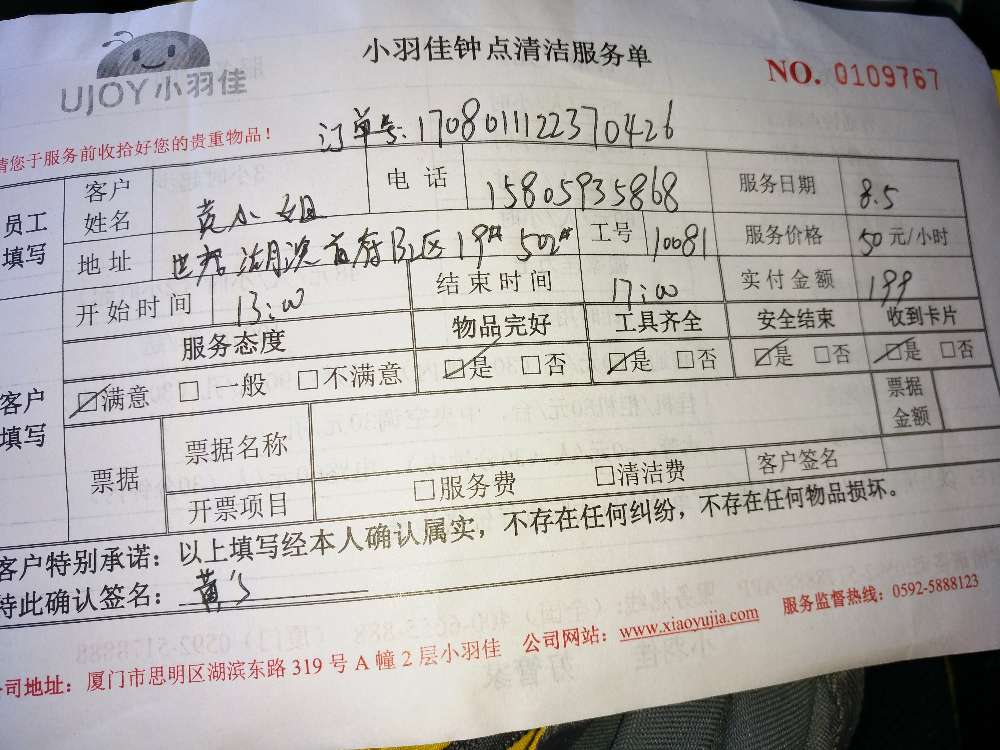 UJOY小羽佳
小羽佳钟点清洁服务单
NO. 0109767
请您于服务前收拾好您的贵重物品！
订单号:1708011122370426
员工填写 客户姓名 黄小姐 电话 15805935868 服务日期 8.5
地址 世茂湖滨首府B区19# 502# 工号 10081 服务价格 50元/小时
开始时间 13:00 结束时间 17:00 实付金额 199
客户填写 服务态度 物品完好 工具齐全 安全结束 收到卡片
☑满意 □一般 □不满意 ☑是 □否 ☑是 □否 ☑是 □否 ☑是 □否
票据 票据名称 票据金额
开票项目 □服务费 □清洁费 客户签名
客户特别承诺：以上填写经本人确认属实，不存在任何纠纷，不存在任何物品损坏。
特此确认签名：黄
公司地址：厦门市思明区湖滨东路319号A幢2层小羽佳 公司网站：www.xiaoyujia.com 服务监督热线：0592-5888123